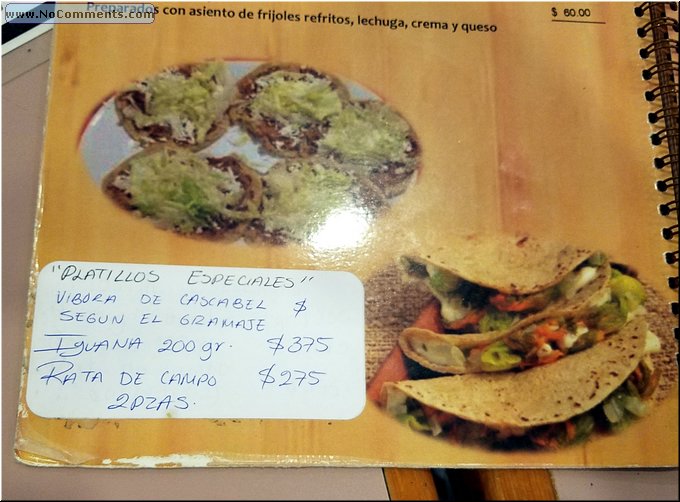 www.NoComments.com
Preparados con asiento de frijoles refritos, lechuga, crema y queso
$ 60.00
"PLATILLOS ESPECIALES"
VIBORA DE CASCABEL $
SEGUN EL GRAMAJE
IGUANA 200 gr. $375
RATA DE CAMPO $275
2PZAS.